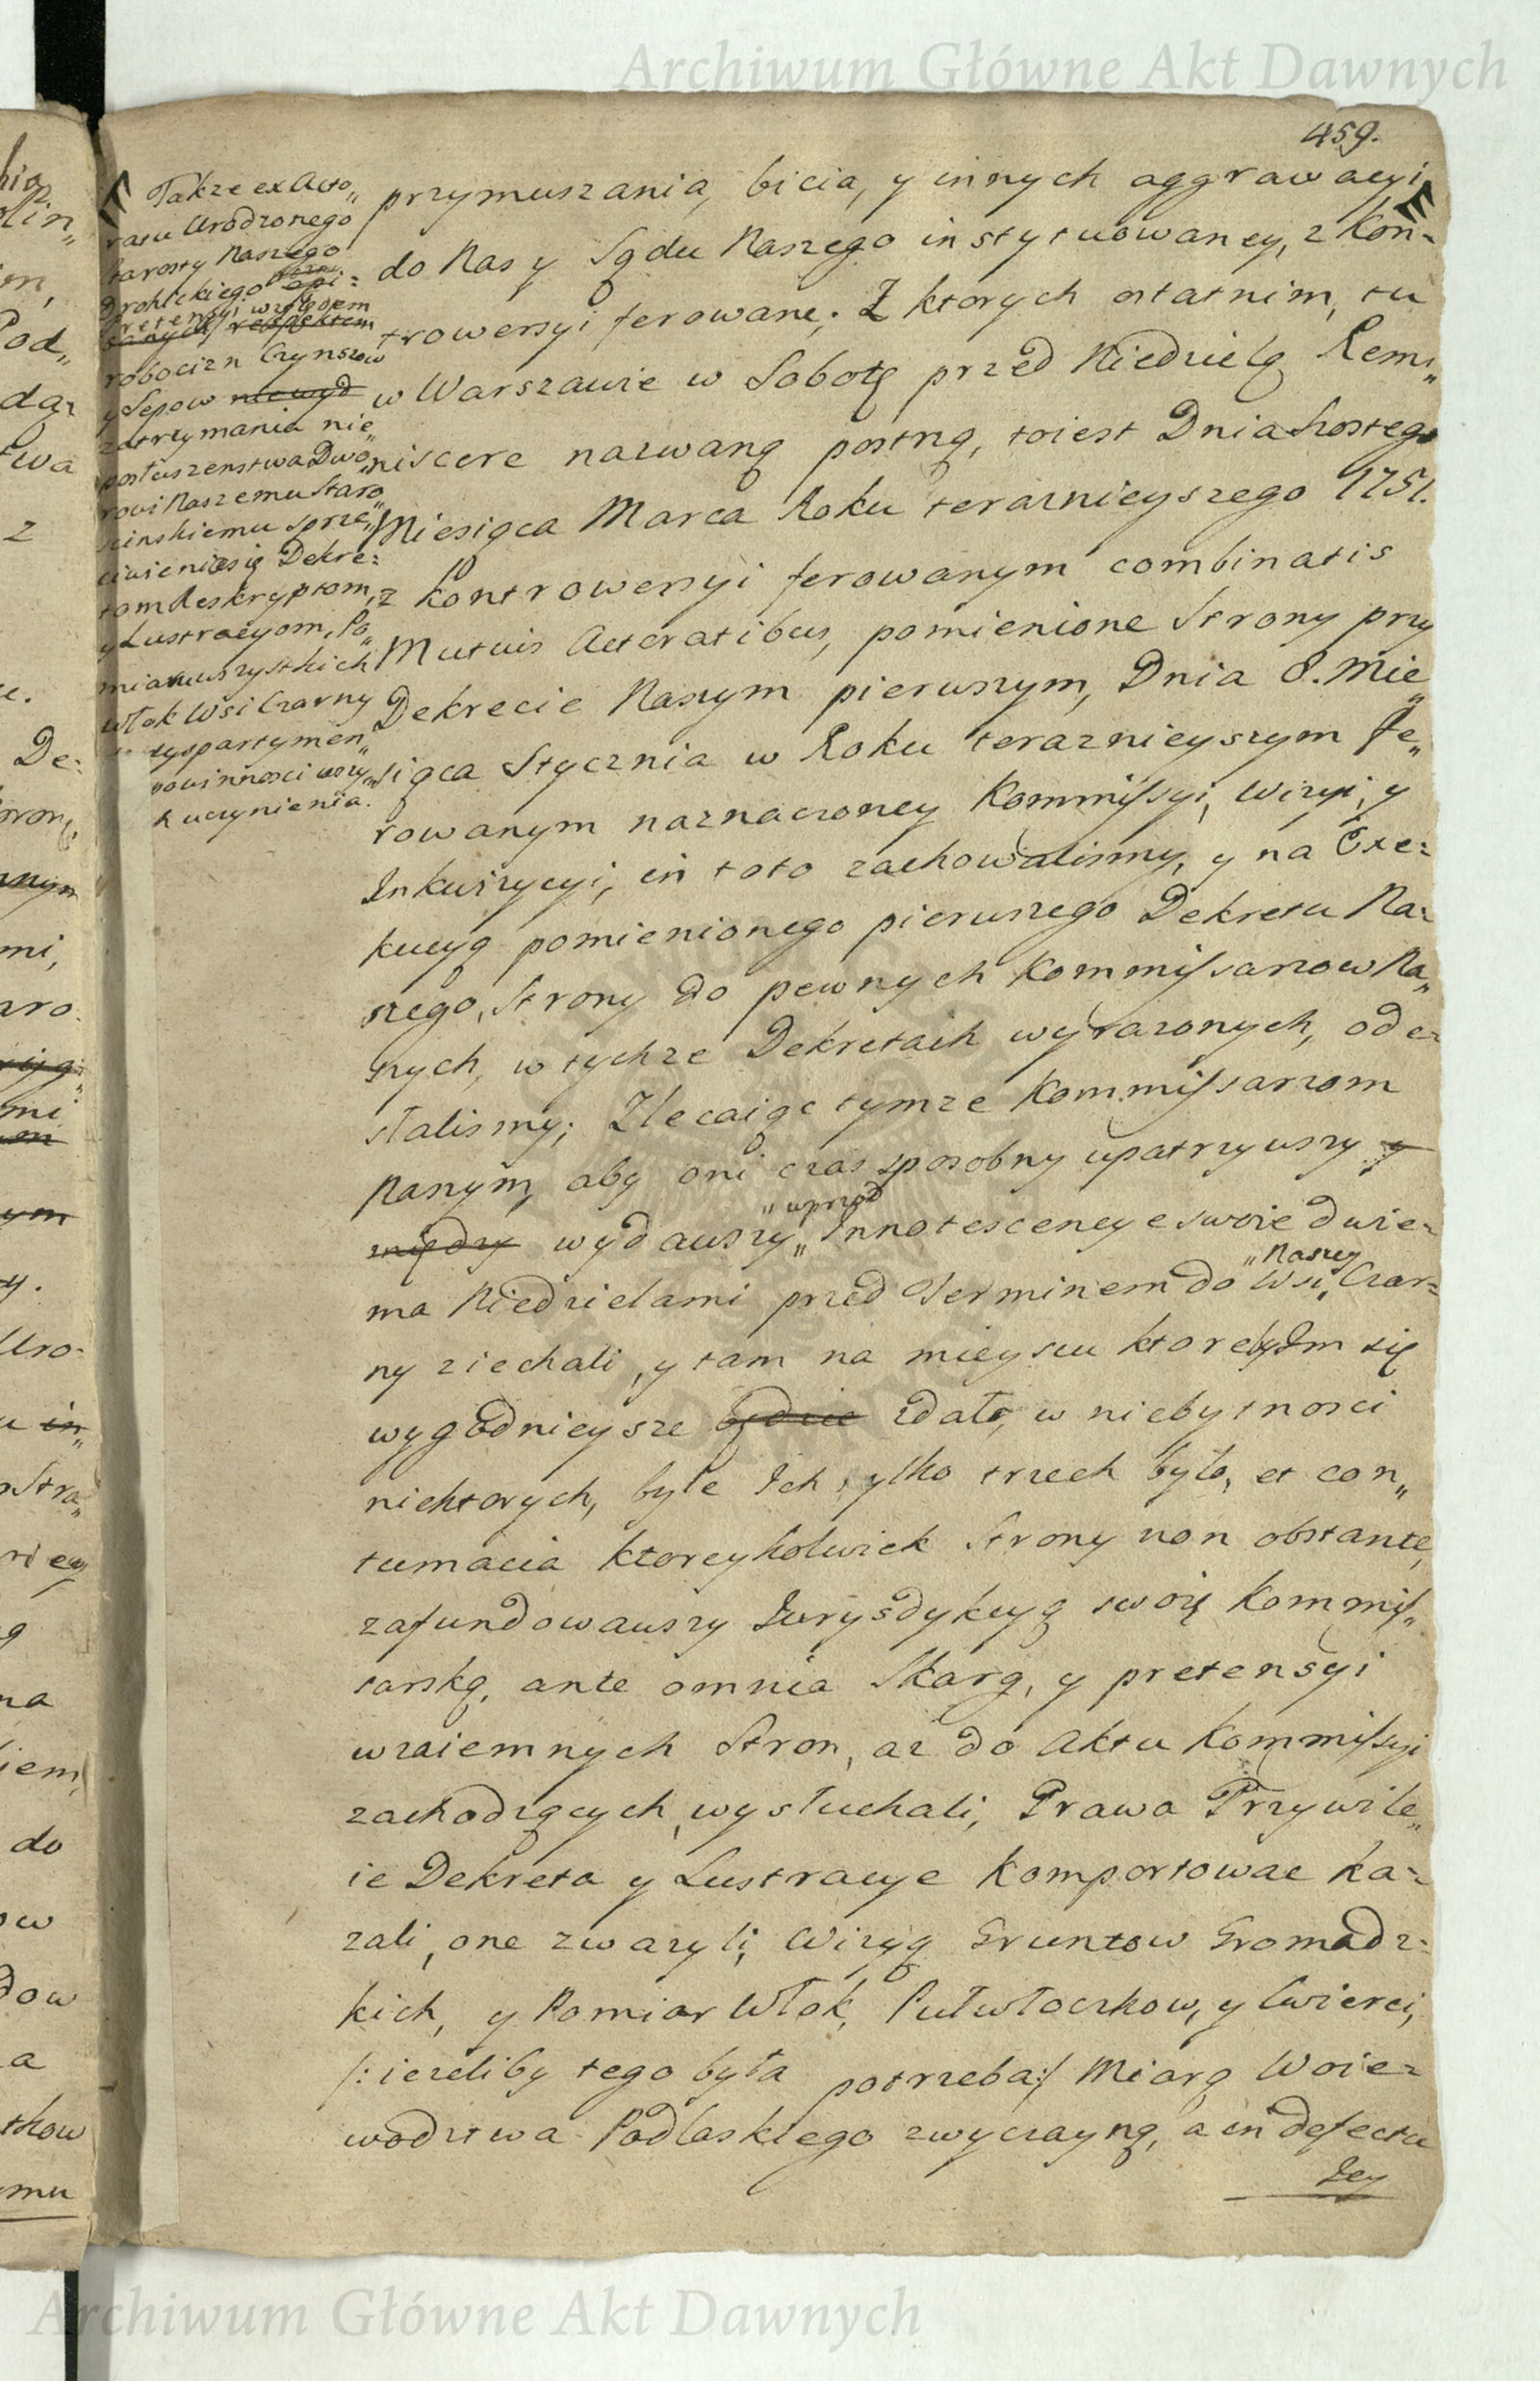 Archiwum Główne Akt Dawnych
459.
Także ex Acto„
ratu Urodzonego
Starosty Naszego
Drohickiego
pretensyi względem
respektem
robocizn Czynszow
y Sepow
zatrzymania nie„
posłuszenstwa Dwo„
rowi Naszemu Staro„
scinskiemu sprze„
ciwienia się Dekre=
tom Reskryptom,
y Lustracyom, Po„
miaru wszystkich
włok Wsi Czarny
y
powinnosci wszy„
uczynienia.
przymuszania, bicia, y innych aggrawacyi,
do Nas y Sądu Naszego instytuowaney, z Kon=
trowersyi ferowane; Z ktorych ostatnim, tu
w Warszawie w Sobotę przed Niedzielą Remi„
niscere nazwaną postną, toiest Dnia Szostego
Miesiąca Marca Roku terazniejszego 1751.
z Kontrowersyi ferowanym combinatis
Mutuis Actoratibus, pomienione Strony przy
Dekrecie Naszym pierwszym, Dnia 8. Mie„
siąca Stycznia w Roku teraznieyszym fe„
rowanym naznaczoney Kommissyi, Wizyi, y
Inkwizycyi, in toto zachowalismy, y na Exe=
kucyą pomienionego pierwszego Dekretu Na=
szego, Strony do pewnych Kommissarzow Na„
szych, w tychze Dekretach wyrazonych, ode=
słalismy; Zlecaiąc tymze Kommissarzom
Naszym, aby oni czas sposobny upatrzywszy y
między wydawszy „uprzod Innotescencye swoie dwie=
ma Niedzielami przed Terminem do Wsi „Naszey Czar=
ny ziechali, y tam na mieyscu ktore by Im się
wygodnieysze będzie zdało, w niebytnosci
niektorych, byle Ich tylko trzech było, et con„
tumacia ktoreykolwiek Strony non obstante,
zafundowawszy Jurysdykcyą swoię Kommis„
sarską, ante omnia Skarg, y pretensyi
wzaiemnych Stron, az do Aktu Kommissyi
zachodzących, wysłuchali; Prawa Przywile„
ie Dekreta y Lustracye Komportowac ka=
zali, one zwazyli, Wizyą Gruntow Gromadz=
kich, y Pomiar Włok, Pułwłoczkow, y Cwierci,
/: iezeliby tego była potrzeba :/ Miarą Woie=
wodztwa Podlaskiego zwyczayną, a in defectu
Jey
Archiwum Główne Akt Dawnych